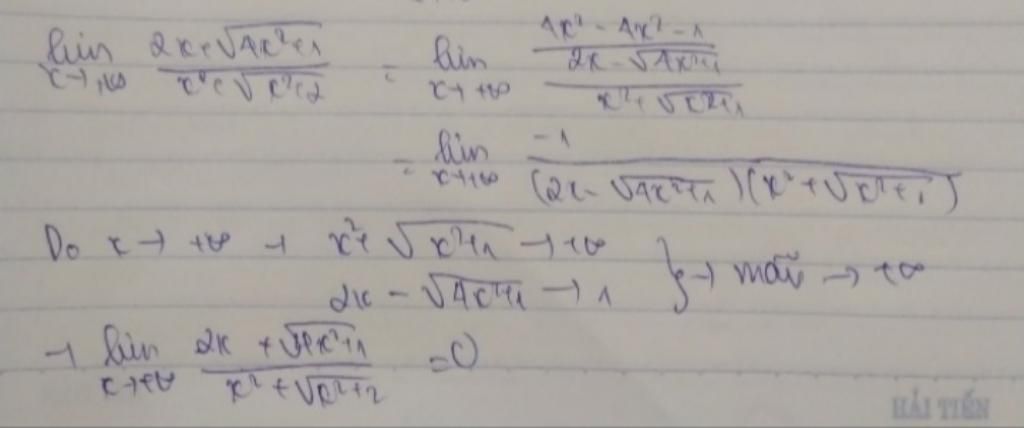 lim x→+∞ (2x+√(4x²+1))/(x²+√(x²+2)) = lim x→+∞ ((4x²-4x²-1)/(2x-√(4x²+1)))/(x²+√(x²+1))
= lim x→+∞ -1/((2x-√(4x²+1))(x²+√(x²+1)))
Do x→+∞ → x²+√(x²+1) →+∞
2x-√(4x²+1) →1 } → mẫu → +∞
→ lim x→+∞ (2x+√(4x²+1))/(x²+√(x²+2)) =0
HẢI TIẾN